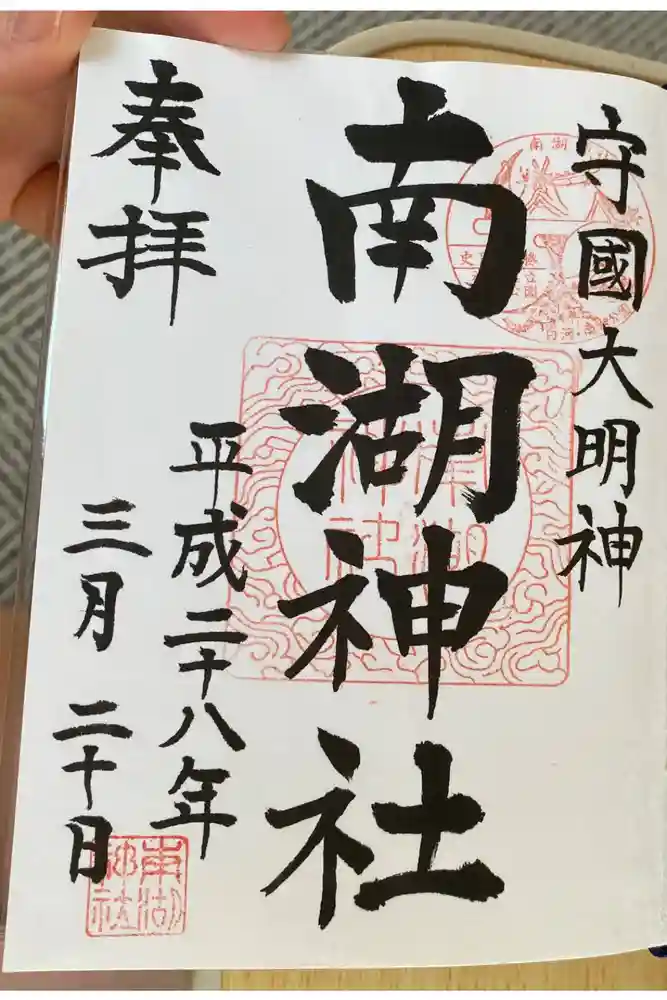 守國大明神
南湖神社
奉拝
平成二十八年
三月二十日
南湖
南湖神社
南湖神社